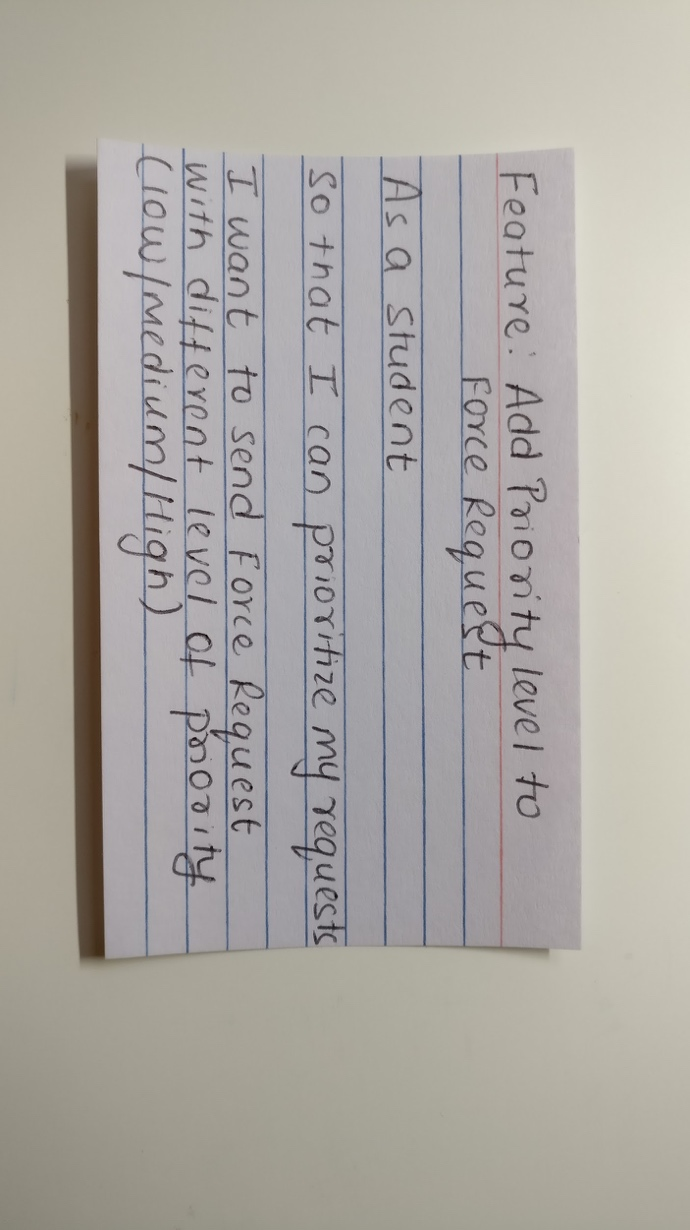 Feature: Add Priority level to
Force Request
As a student
So that I can prioritize my requests
I want to send Force Request
with different level of priority
(low/Medium/High)